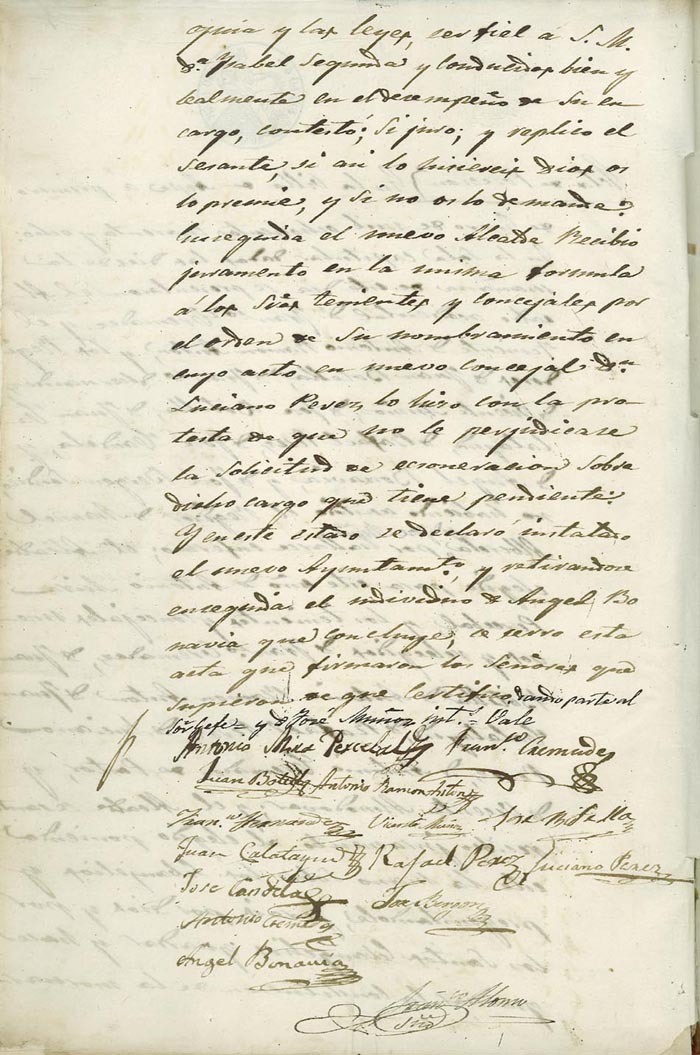 quia y las leyes, ser fiel á S. M.
d.ª Ysabel Segunda y conducidos bien y
lealmente en el desempeño de su en
cargo, contestó; Si juro; y replico el
Sesante, si asi lo hiciereis Dios os
lo premie, y si no os lo demande:
Enseguida el nuevo Alcalde Recibio
juramento en la misma formula
á los Sres tenientes y concejales por
el orden de su nombramiento en
cuyo acto en nuevo concejal d.n
Luciano Perez, lo hizo con la pro
testa de que no le perjudicase
la solicitud de ecsoneracion sobre
dicho cargo que tiene pendiente:
Y en este estado se declaró instalado
el nuevo Ayuntamto, y retirandose
enseguida el individuo d. Angel Bo
navia que concluye, se serro esta
acta que firmaron los Señores que
supieron de que Certifico, dando parte al
Sor Gefe = y d. José Muñoz int.º = Vale
Antonio Mira Percebal Fran.co Cremades
Juan Botella Antonio Ramon
Fran.co Hernandez Vicente Muñoz Jose
Juan Calatayud Rafael Perez Luciano Perez
Jose Candela Jose
Antonio
Angel Bonavia
Fran.co Alonso
Srio